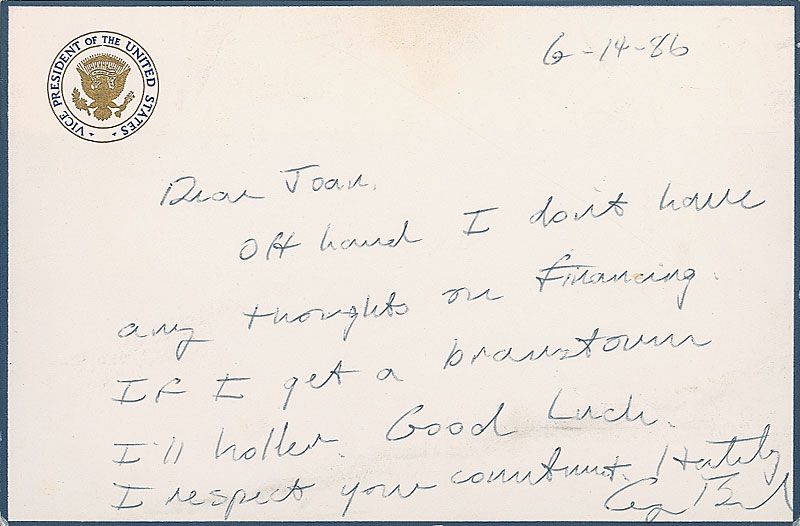 VICE PRESIDENT OF THE UNITED STATES
6-14-86
Dear Joan,
Off hand I don't have
any thoughts on financing.
If I get a brainstorm
I'll holler. Good Luck.
I respect your commitment. Hastily
G Bush